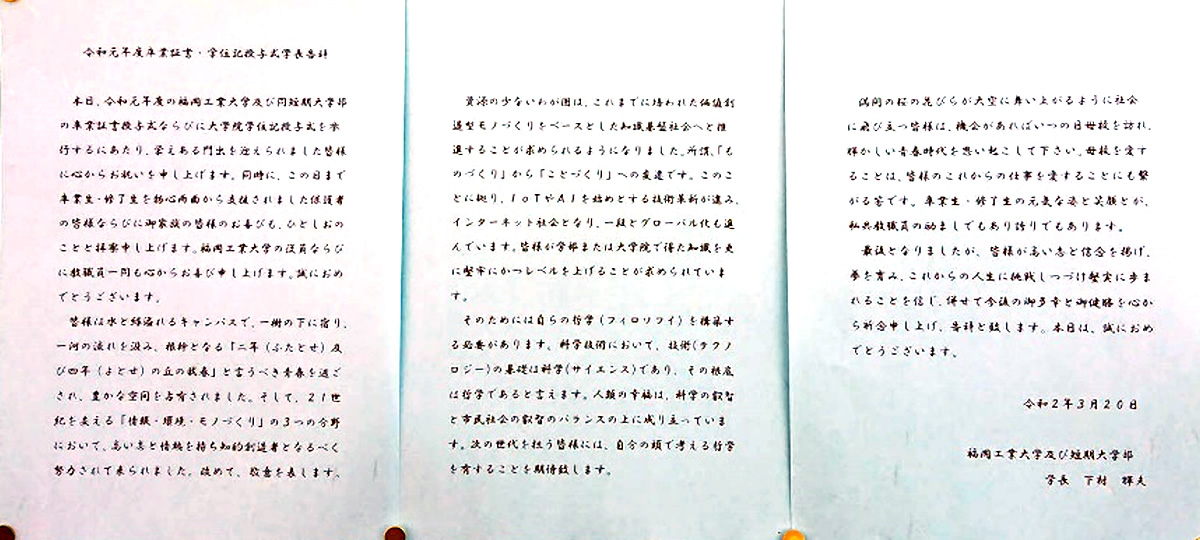 令和元年度卒業証書・学位記授与式学長告辞
本日、令和元年度の福岡工業大学及び同短期大学部
の卒業証書授与式ならびに大学院学位記授与式を挙
行するにあたり、栄えある門出を迎えられました皆様
に心からお祝いを申し上げます。同時に、この日まで
卒業生・修了生を物心両面から支援されました保護者
の皆様ならびに御家族の皆様のお喜びも、ひとしおの
ことと拝察申し上げます。福岡工業大学の役員ならび
に教職員一同も心からお喜び申し上げます。誠におめ
でとうございます。
皆様は水と緑溢れるキャンパスで、一樹の下に宿り、
一河の流れを汲み、根幹となる「二年（ふたとせ）及
び四年（よとせ）の丘の我春」と言うべき青春を過ご
され、豊かな空間を占有されました。そして、２１世
紀を支える「情報・環境・モノづくり」の３つの分野
において、高い志と情熱を持ち知的創造者となるべく
努力されて来られました。改めて、敬意を表します。
資源の少ないわが国は、これまでに培われた価値創
造型モノづくりをベースとした知識基盤社会へと推
進することが求められるようになりました。所謂、「も
のづくり」から「ことづくり」への変遷です。このこ
とに拠り、ＩｏＴやＡＩを始めとする技術革新が進み、
インターネット社会となり、一段とグローバル化も進
んでいます。皆様が学部または大学院で得た知識を更
に堅牢にかつレベルを上げることが求められていま
す。
そのためには自らの哲学（フィロソフイ）を構築す
る必要があります。科学技術において、技術(テクノ
ロジー)の基礎は科学(サイエンス)であり、その根底
は哲学であると言えます。人類の幸福は、科学の叡智
と市民社会の叡智のバランスの上に成り立っていま
す。次の世代を担う皆様には、自分の頭で考える哲学
を有することを期待致します。
満開の桜の花びらが大空に舞い上がるように社会
に飛び立つ皆様は、機会があればいつの日母校を訪れ、
輝かしい青春時代を思い起こして下さい。母校を愛す
ることは、皆様のこれからの仕事を愛することにも繋
がる筈です。卒業生・修了生の元気な姿と笑顔とが、
私共教職員の励ましでもあり誇りでもあります。
最後となりましたが、皆様が高い志と信念を掲げ、
夢を育み、これからの人生に挑戦しつづけ堅実に歩ま
れることを信じ、併せて今後の御多幸と御健勝を心か
ら祈念申し上げ、告辞と致します。本日は、誠におめ
でとうございます。
令和２年３月２０日
福岡工業大学及び短期大学部
学長　下村　輝夫